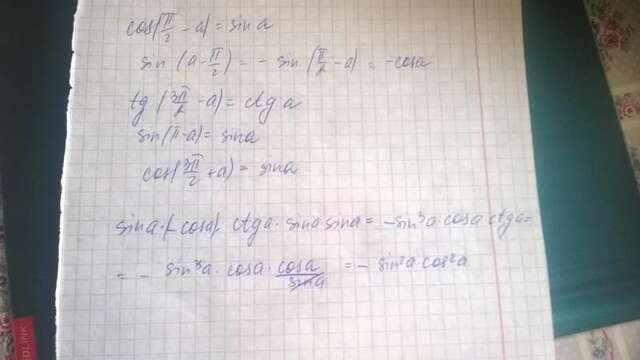 cos(π/2 - a) = sin a
sin (a - π/2) = - sin (π/2 - a) = - cos a
tg (3π/2 - a) = ctg a
sin(π - a) = sin a
cos(3π/2 + a) = sin a
sin a · (- cos a) · ctg a · sin a sin a = - sin³a · cos a ctg a =
= - sin³a · cos a · cos a / sin a = - sin²a cos²a
DLINK